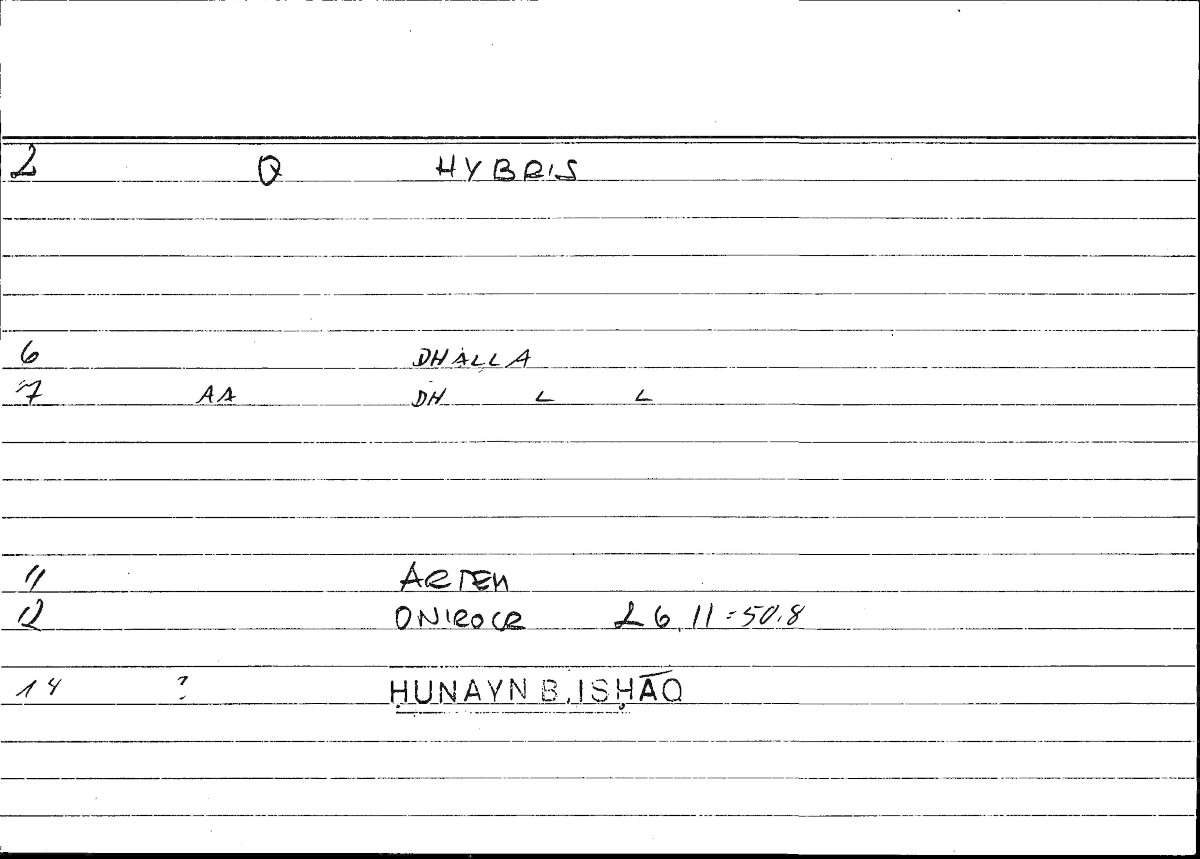 2 Q HYBRIS
6 DHALLA
7 AA DH L L
11 ARTEM
12 ONIROCR 26,11=50.8
14 ? ḤUNAYN B.ISḤĀQ